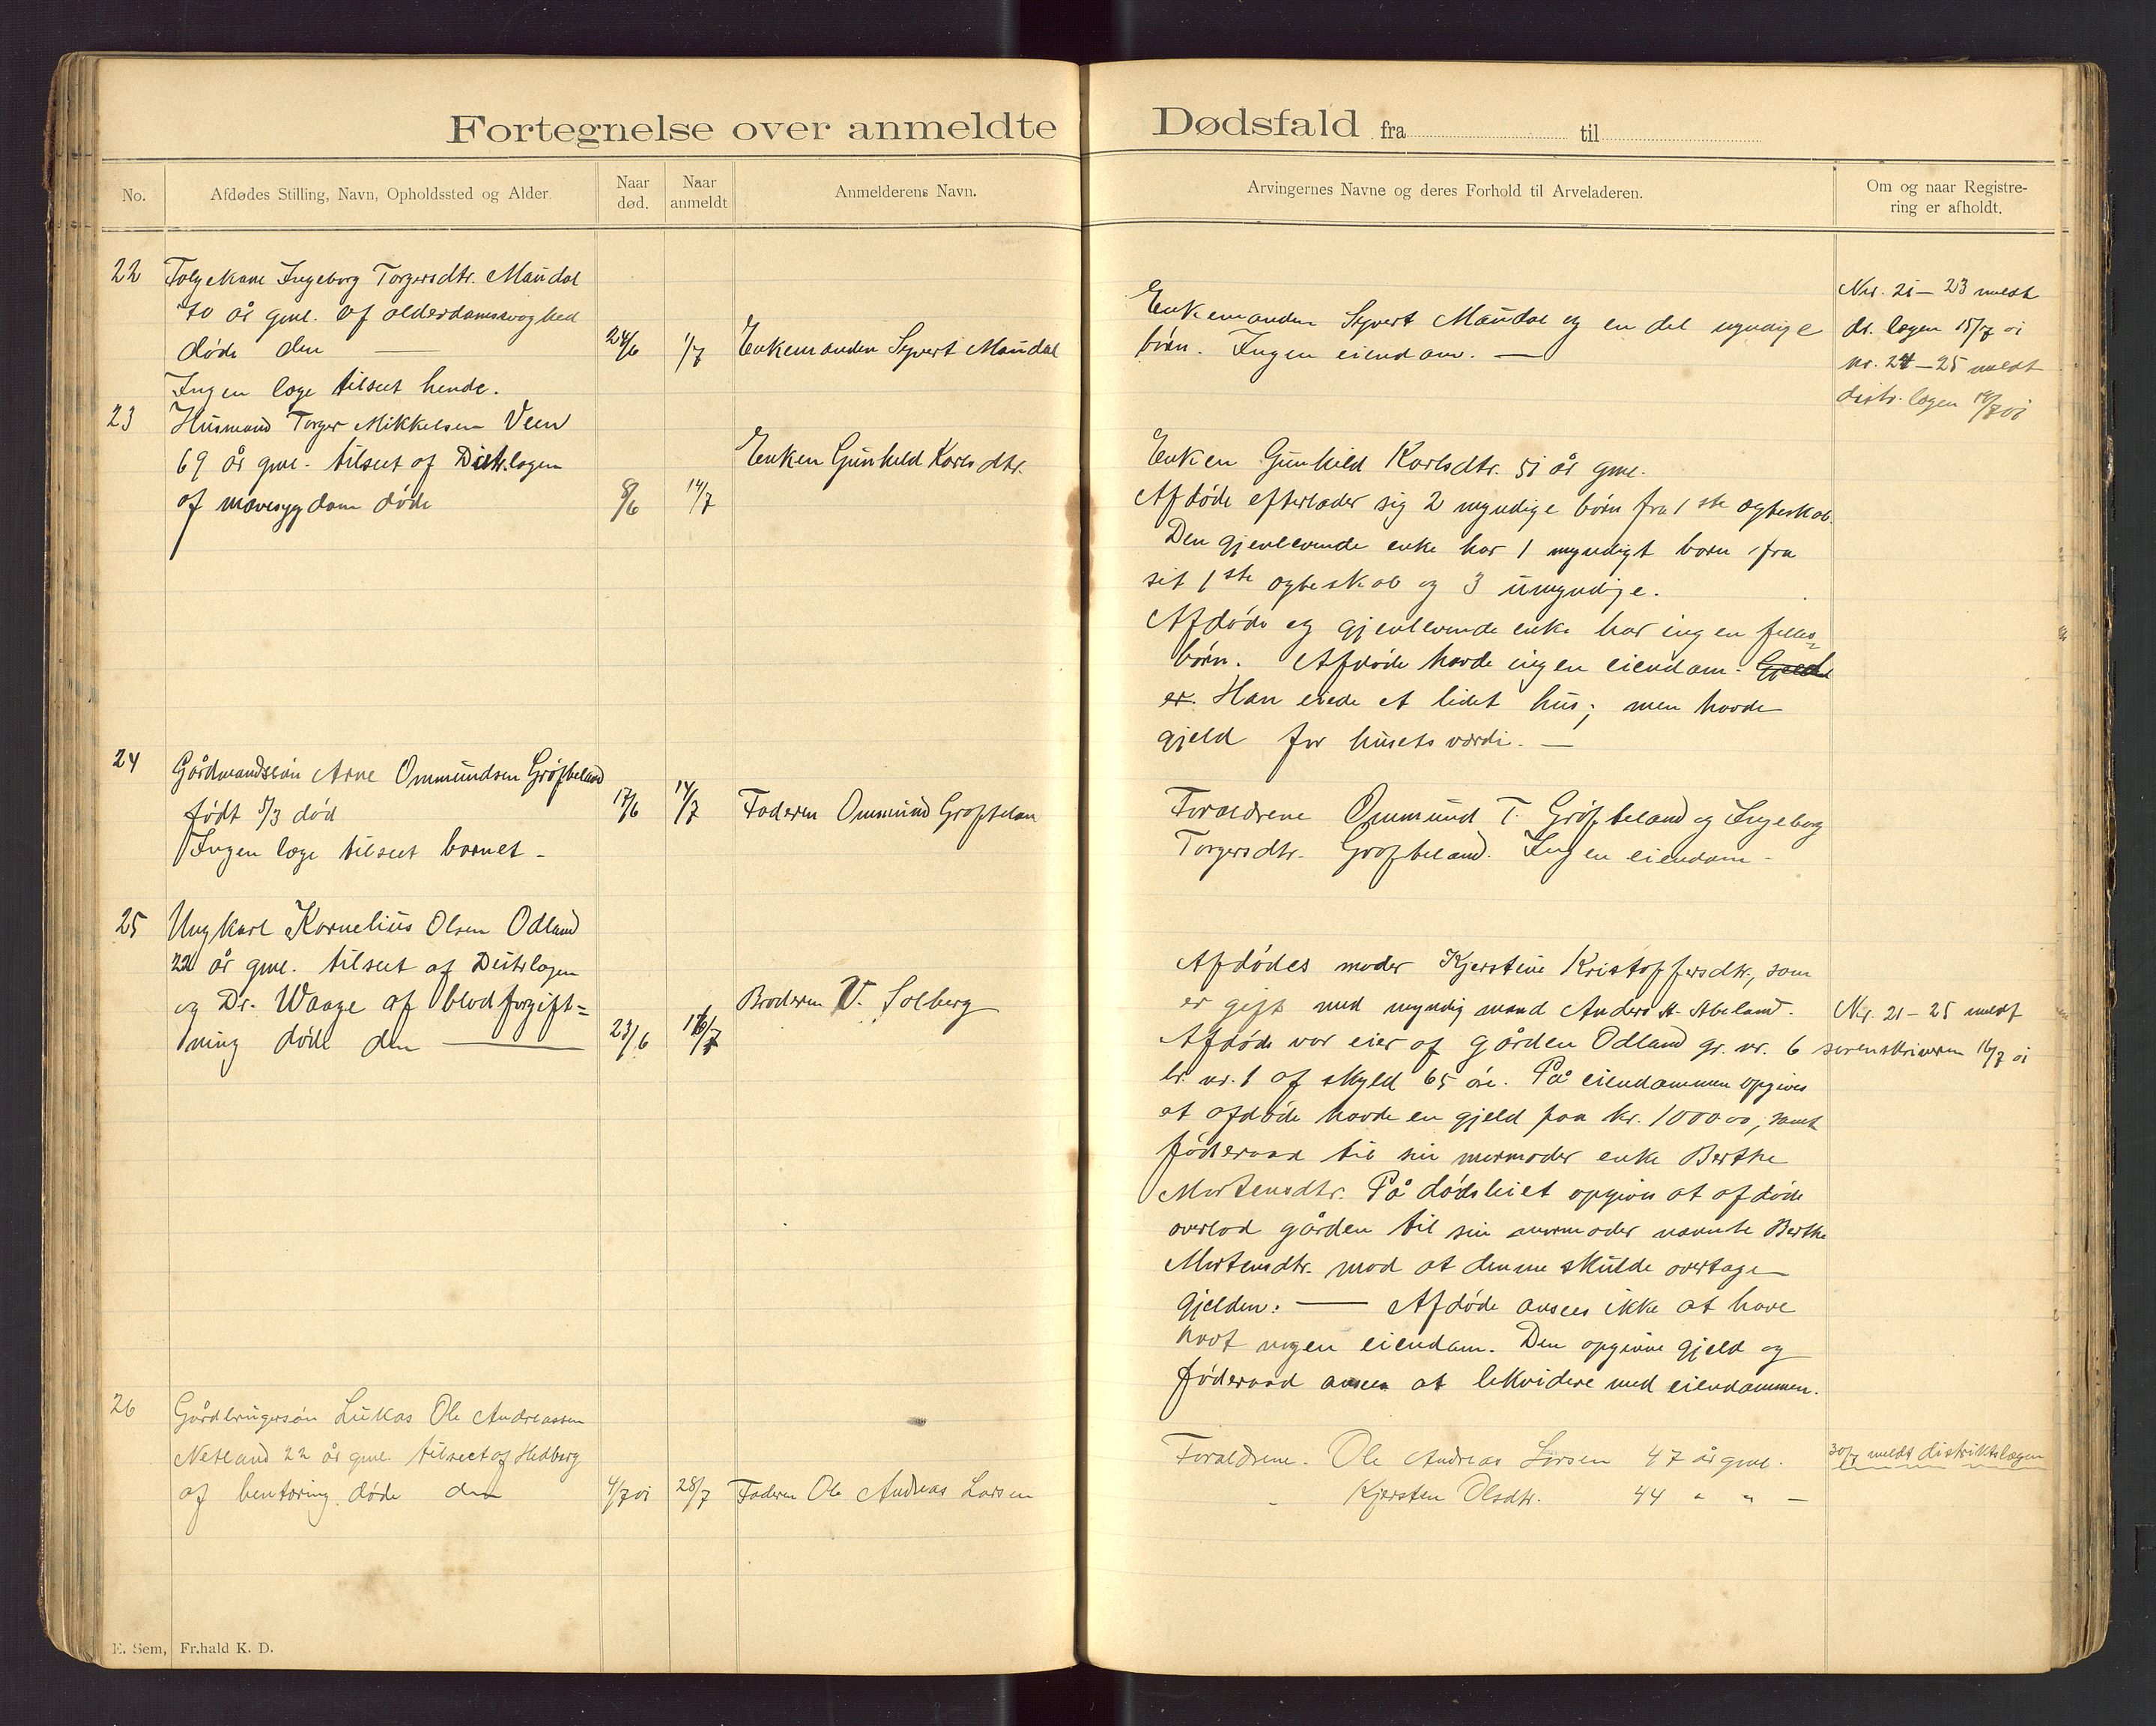 Fortegnelse over anmeldte Dødsfald fra til
No.
Afdødes Stilling, Navn, Opholdssted og Alder.
Naar død.
Naar anmeldt
Anmelderens Navn.
Arvingernes Navne og deres Forhold til Arveladeren.
Om og naar Registre-
ring er afholdt.
22 Følgekone Ingeborg Torgersdtr. Maudal
år gml. af alderdomssvaghed
døde den — 24/6 1/7 Enkemanden Syvert Maudal
Ingen læge tilseet hende.
Enkemanden Syvert Maudal og en del myndige
børn. Ingen eiendom. —
Nr. 21-23 meldt
di. lægen 15/7 01
nr. 24-25 meldt
distr. lægen
23 Husmand Torger Mikkelsen Veen
69 år gml. tilseet af Distr.lægen
af mavesygdom døde 8/6 14/7
Enken Gunhild Karlsdtr.
Enken Gunhild Karlsdtr. 51 år gml.
Afdøde efterlader sig 2 myndige børn fra 1ste ægteskab.
Den gjenlevende enke har 1 myndigt barn fra
sit 1ste ægteskab og 3 umyndige.
Afdøde og gjenlevende enke har ingen fælles-
børn. Afdøde havde ingen eiendom. Gjeld
er. Han eiede et lidet hus; men havde
gjeld for husets værdi. —
24 Gårdmandssøn Arne Ommundsen Grøfteland
født 5/3 død 17/6 14/7 Faderen Ommund Grøftelan
Ingen læge tilseet barnet -
Forældrene Ommund T. Grøfteland og Ingeborg
Torgersdtr. Grøfteland. Ingen eiendom -
25 Ungkarl Kornelius Olsen Odland
22 år gml. tilseet af Distr.lægen
og Dr. Waage af blodforgift=
ning døde den — 23/6 16/7
Broderen V. Solberg
Afdødes moder Kjerstine Kristoffersdtr, som
er gift med myndig mand Anders A. Abeland.
Afdøde var eier af gården Odland gr. nr. 6
br. nr. 1 af skyld 65 øre. På eiendommen opgives
at afdøde havde en gjeld paa kr. 1000 00, samt
føderaad til sin mormoder enke Berthe
Mortensdtr. På dødsleiet opgives at afdøde
overlod gården til sin mormoder nævnte Berthe
Mortensdtr. mod at denne skulde overtage
gjelden. — Afdøde ansees ikke at have
havt nogen eiendom. Den opgivne gjeld og
føderaad ansees at likvidere med eiendommen.
Nr. 21-25 meldt
sorenskriveren 16/7 01
26 Gårdbrugersøn Lukas Ole Andreassen
Netland 22 år gml. tilseet af Hedberg
af bentæring døde den 4/7 01 28/7 Faderen Ole Andreas Larsen
Forældrene. Ole Andreas Larsen 47 år gml.
- Kjersten Olsdtr. 44 " " -
30/7 meldt distriktslægen
E. Sem, Fr.hald K. D.